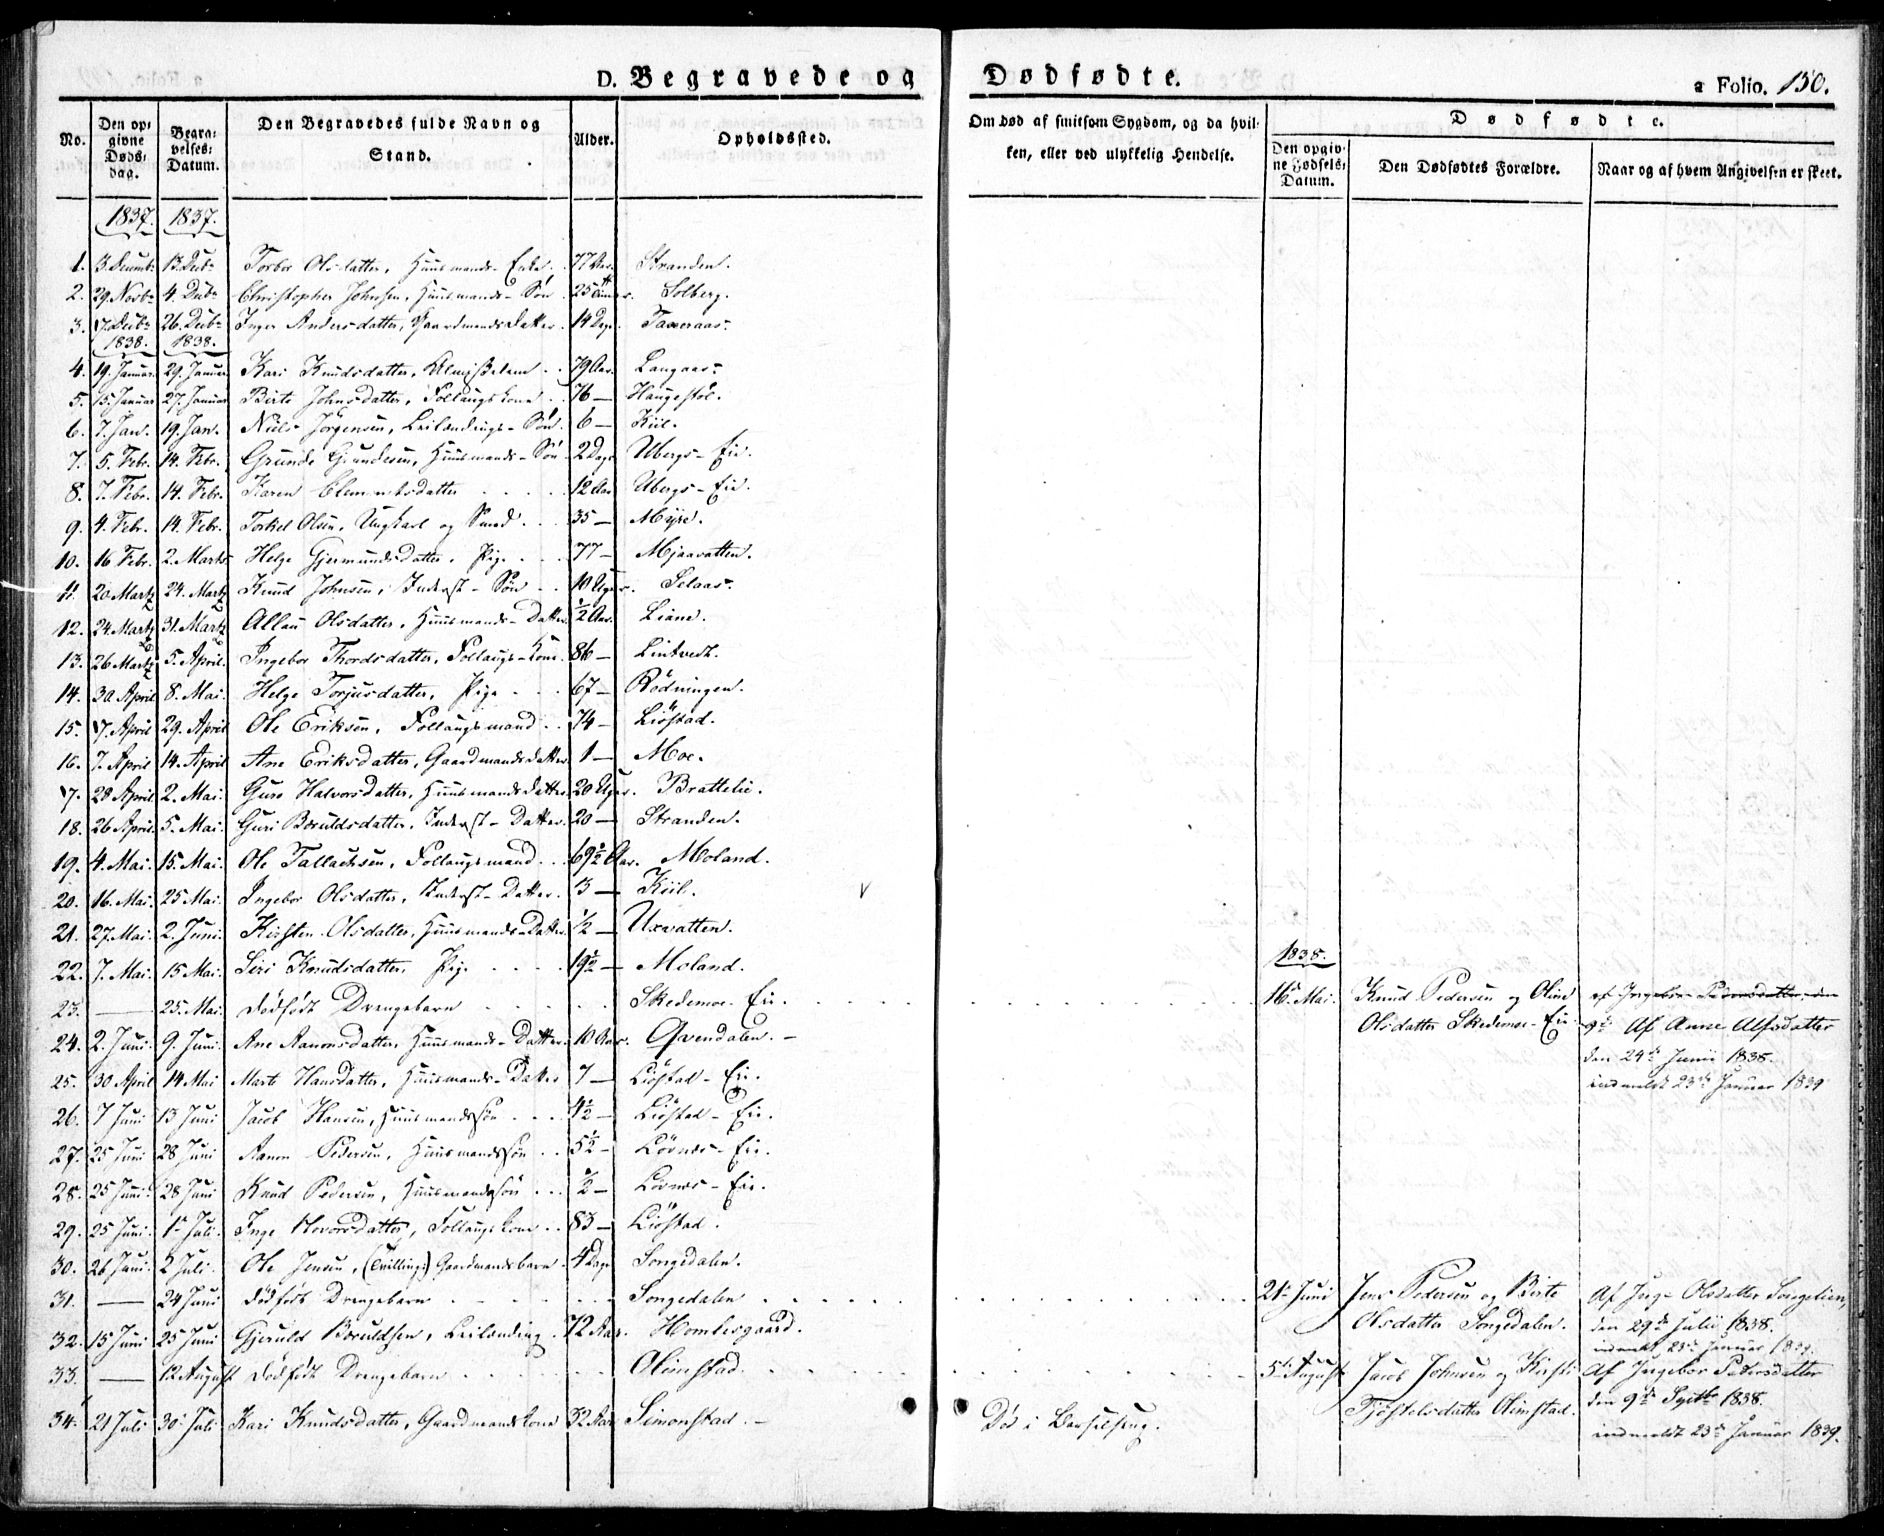 D. Begravede og Dødfødte.
a Folio. 150.
No. Den op: givne Døds: dag. Begra: velses: Datum. Den Begravedes fulde Navn og Stand. Alder. Opholdssted. Om død af smitsom Sygdom, og da hvil: ken, eller ved ulykkelig Hendelse. Dødfødte. Den opgiv: ne Fødsels: Datum. Den Dødfødtes Forældre. Naar og af hvem Angivelsen er skeet.
1837. 1837.
1. 3. Decemb. 13. Decbr Torbor Olsdatter, Huusmands-Enke. 77 Aar. Stranden.
2. 29. Novbr 4. Decbr Christopher Johnsen, Huusmands-Søn. 25 Timer. Solberg.
3. 7. Decbr 26. Decbr Inger Andersdatter, Gaardmandsdatter. 14 Dage. Taxeraas.
1838. 1838.
4. 19. Januar 29. Januar Kari Knudsdatter, Almisselem 79 Aar. Langaas.
5. 15. Januar 27. Januar Birte Johnsdatter, Follaugskone 76 — Haugestøl.
6. 7. Jan. 19. Jan. Niels Jørgensen, Leilændings-Søn. 6 — Kiil.
7. 5. Febr. 14. Febr. Grunde Grundesen, Huusmands-Søn. 2 Dage Ubergs-Eie.
8. 7. Febr. 14. Febr. Karen Clementsdatter 12 Aar Ubergs-Eie.
9. 4. Febr. 14. Febr. Torkel Olsen, Ungkarl og Smed 35 — Myre.
10. 16 Febr. 2. Marts Helge Gjermundsdatter, Pige 77 — Mjaavatten.
11. 20 Marts 24. Marts Knud Johnsen, Inderst-Søn 10 Uger. Selaas.
12. 24. Marts 31. Marts Allau Olsdatter, Huusmands-Datter. ½ Aar. Liane.
13. 26 Marts 5. April. Ingebor Thordsdatter, Follaugs-Kone. 86 — Lintvedt.
14. 30 April 8. Mai. Helge Torjusdatter, Pige 67 — Rødningen.
15. 7. April 29. April Ole Eriksen, Follaugsmand 74 — Liøstad.
16. 7. April 14. April Ane Eriksdatter, Gaardmandsdatter 1 — Moe.
17. 28 April. 2. Mai. Guro Halvorsdatter, Huusmandsdatter 20 Uger. Brattelie.
18. 26 April. 5. Mai. Guri Boruldsdatter, Inderst-Datter. 20 — Stranden.
19. 4. Mai. 15. Mai. Ole Tallachsen, Follaugsmand 69½ Aar. Moland.
20. 16. Mai. 25 Mai. Ingebor Olsdatter, Inderst-Datter. 3 — Kiil.
21. 27. Mai. 2. Juni. Kirsten Olsdatter, Huusmands-Datter. ½ — Uxvatten.
22. 7. Mai. 15 Mai. Siri Knudsdatter, Pige 19½ — Moland.
1838.
23. — 25. Mai. Dødfødt Drengebarn Skedemoe-Eie. 16. Mai. Knud Pedersen og Oline af Ingebor Pedersdatter
Olsdatter Skedemoe-Eie. Af Anne Alfsdatter
24. 2. Juni. 9. Juni. Ane Aanonsdatter, Huusmands-Datter. 10 Aar. Qvendalen. den 24de Junii 1838.
25. 30 April 14 Mai Marte Hansdatter, Huusmands-Datter 7 — Liøstad-Eie. indmeldt 23de Januar 1839
26. 7 Juni 13 Juni Jacob Hansen, Huusmandssøn 4½ — Liøstad-Eie.
27. 25 Juni 28 Juni Aanon Pedersen, Huusmandssøn 5½ — Løvnæs-Eie.
28. 25 Juni. 28 Juni Knud Pedersen, Huusmandssøn ½ — Løvnæs-Eie.
29. 25 Juni. 1 Juli. Inge Hovorsdatter, Follaugskone 83 — Liøstad.
30. 26 Juni. 2 Juli. Ole Jensen, (Tvilling:) Gaardmandsbarn. 4 Dage Songedalen.
31. — 24 Juni Dødfødt Drengebarn Songedalen 21. Juni Jens Pedersen og Birte Af Inge Olsdatter Songelien,
32. 15 Juni 25 Juni Gjeruld Boruldsen, Leilænding 72 Aar. Homlesgaard. Olsdatter Songedalen. den 29de Julii 1838.
indmeldt 23de Januar 1839.
33. — 12 August Dødfødt Drengebarn Olimstad. 5. August Jacob Johnsen og Kirsti Af Ingebor Pedersdatter
34. 21 Juli 30 Juli Kari Knudsdatter, Gaardmandskone 32 Aar Simonstad. Død i Barselseng. Tjøstelsdatter Olimstad. den 9de Septbr 1838.
indmeldt 23de Januar 1839.